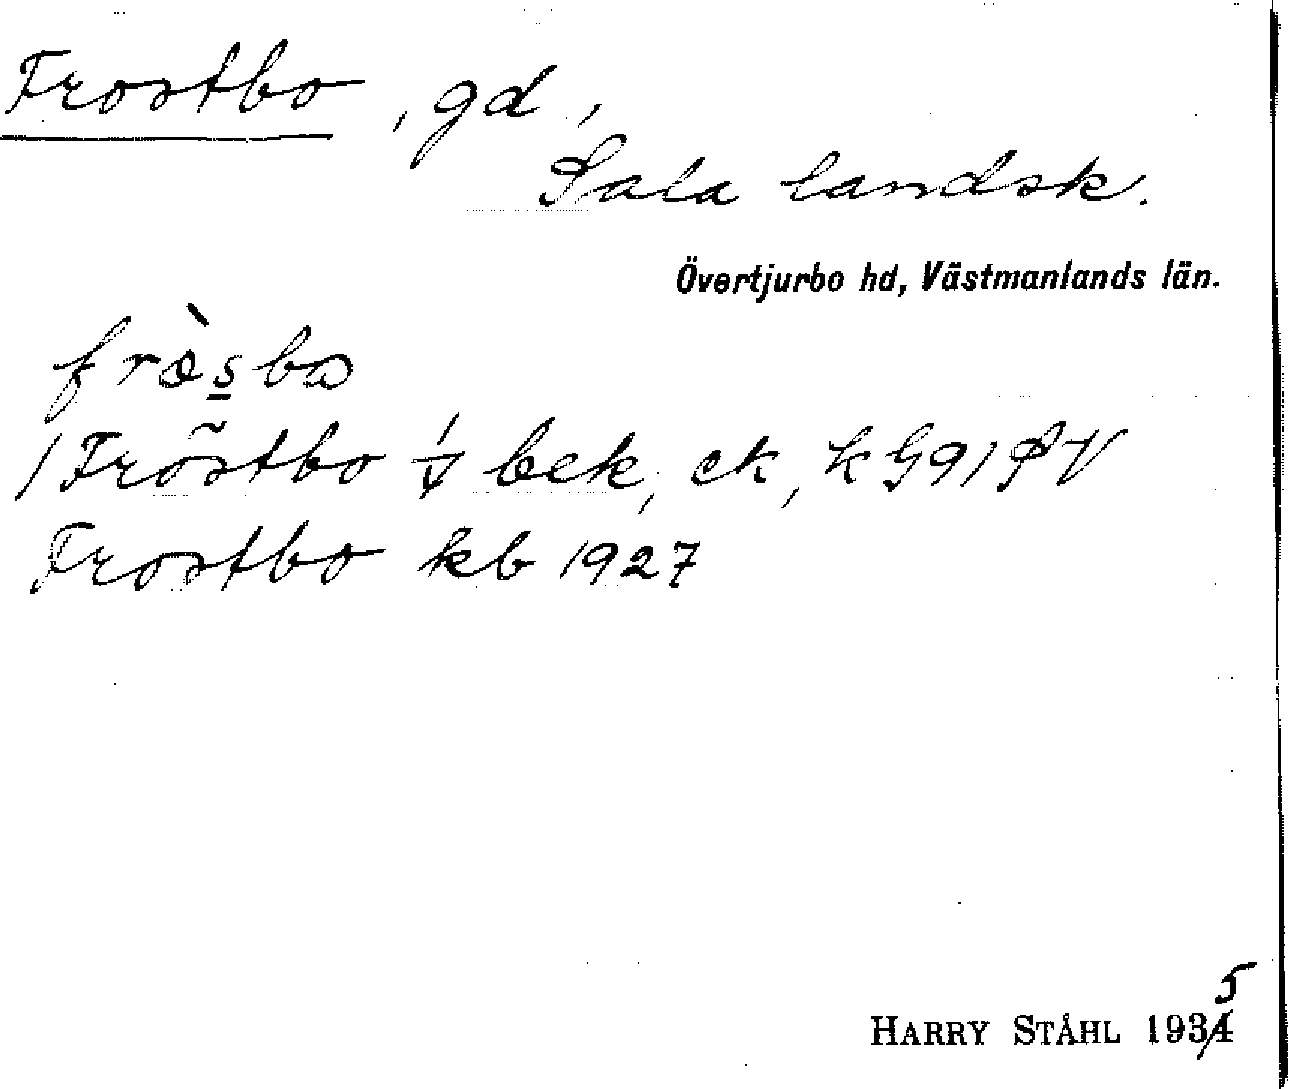 Frostbo, gd,
Sala landsk.
Övertjurbo hd, Västmanlands län.
fròsbo
Fröstbo bek, ek, kG91
Frostbo kb 1927
HARRY STÅHL 1935